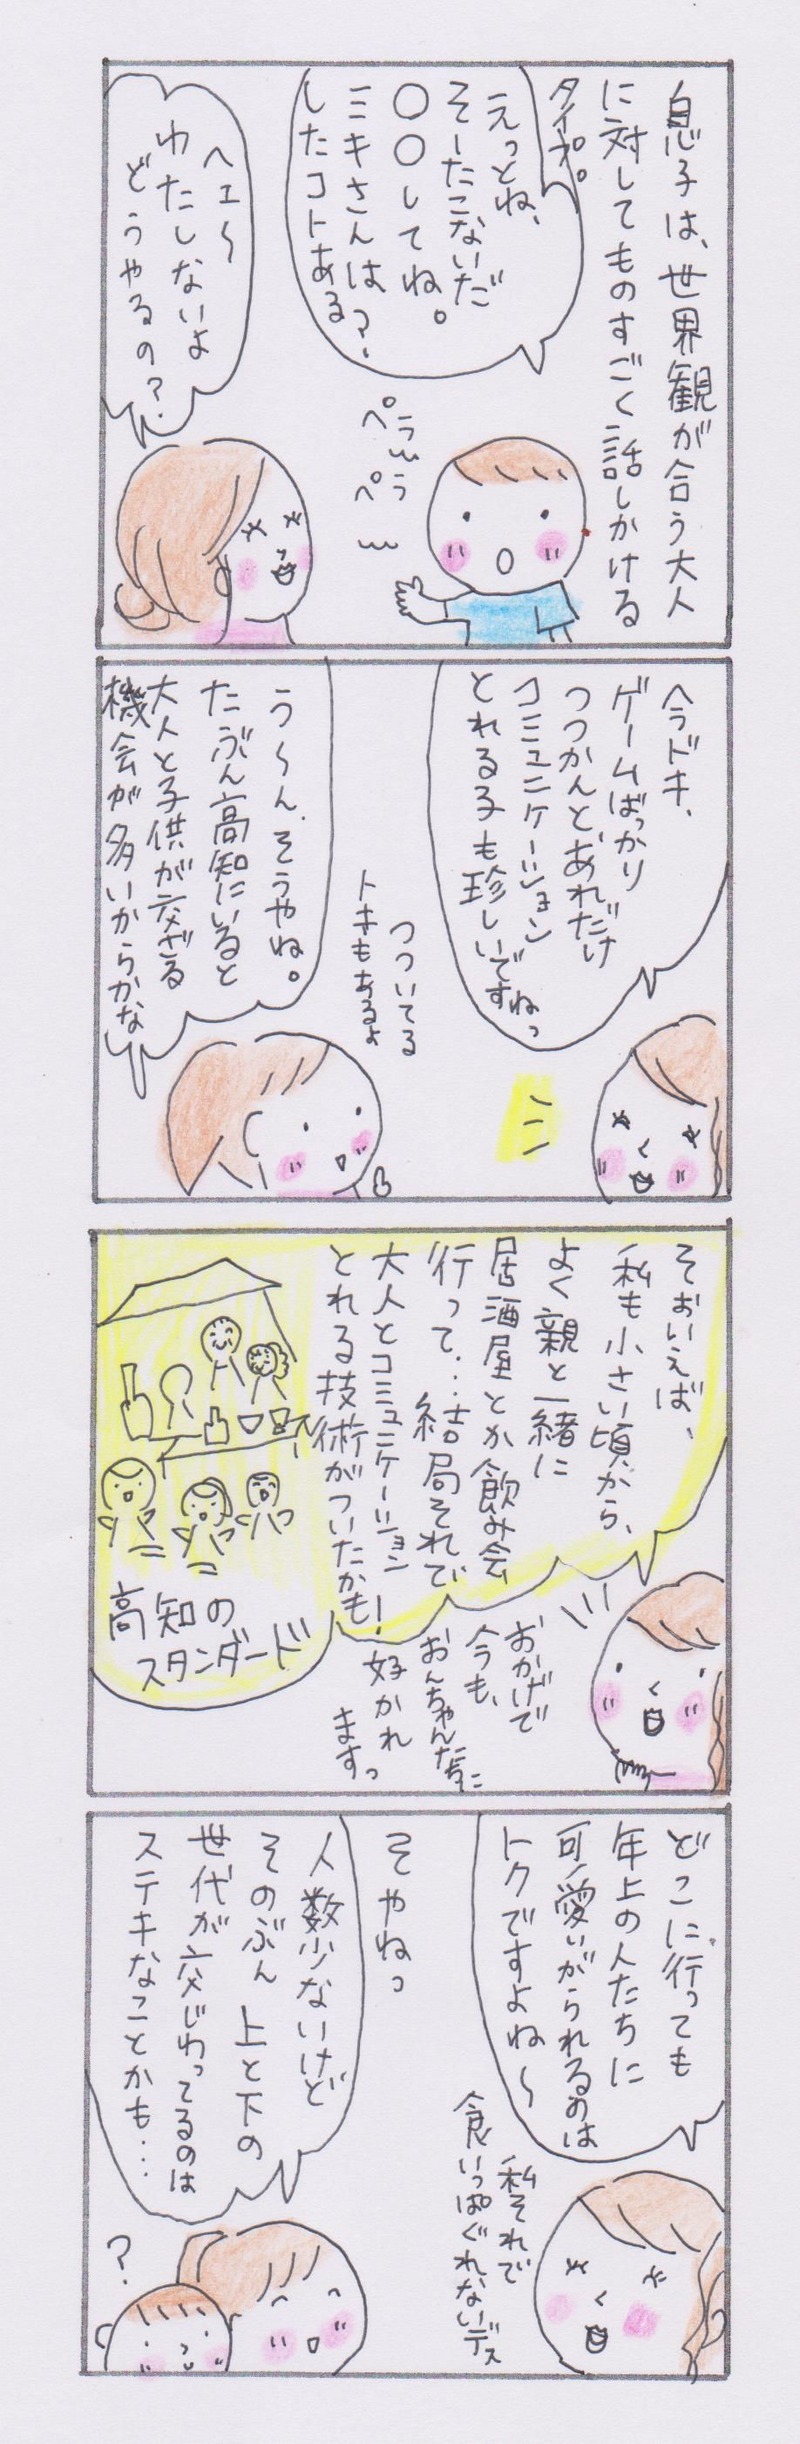 息子は、世界観が合う大人
に対してものすごく話しかける
タイプ。
えっとね、
そーたこないだ
〇〇してね。
ミキさんは?
したコトある
ペラ〜
ペラ〜
ヘエ〜
わたしないよ
どうやるの?
今ドキ、
ゲームばっかり
つつかんと、あれだけ
コミュニケーション
とれる子も珍しいですねっ
つついてる
トキもあるよ
う〜ん、そうやね。
たぶん高知にいると
大人と子供が交ざる
機会が多いからかな
そおいえば、
私も小さい頃から、
よく親と一緒に
居酒屋とか飲み会
行って…結局それで
大人とコミュニケーション
とれる技術がついたかも!
高知の
スタンダード
おかげで
今も、
おんちゃんたちに
好かれ
ますっ
どこに行っても
年上の人たちに
可愛いがられるのは
トクですよね〜
私それで
食いっぱぐれないデス
そやねっ
人数少ないけど
そのぶん上と下の
世代が交じわってるのは
ステキなことかも…
?